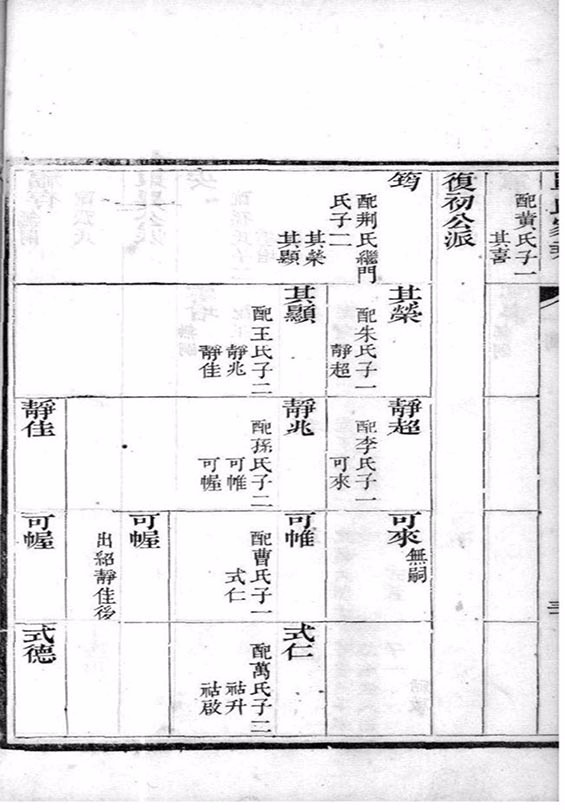 配黃氏子一
其喜
三
復初公派
筠
配荆氏繼門
氏子二
其榮
其顯
其榮
配朱氏子一
靜超
其顯
配王氏子二
靜兆
靜佳
靜超
配李氏子一
可來
靜兆
配孫氏子二
可帷
可幄
靜佳
可來
無嗣
可帷
配曹氏子一
式仁
可幄
出紹靜佳後
可幄
式仁
配萬氏子二
祜升
祜啟
式德